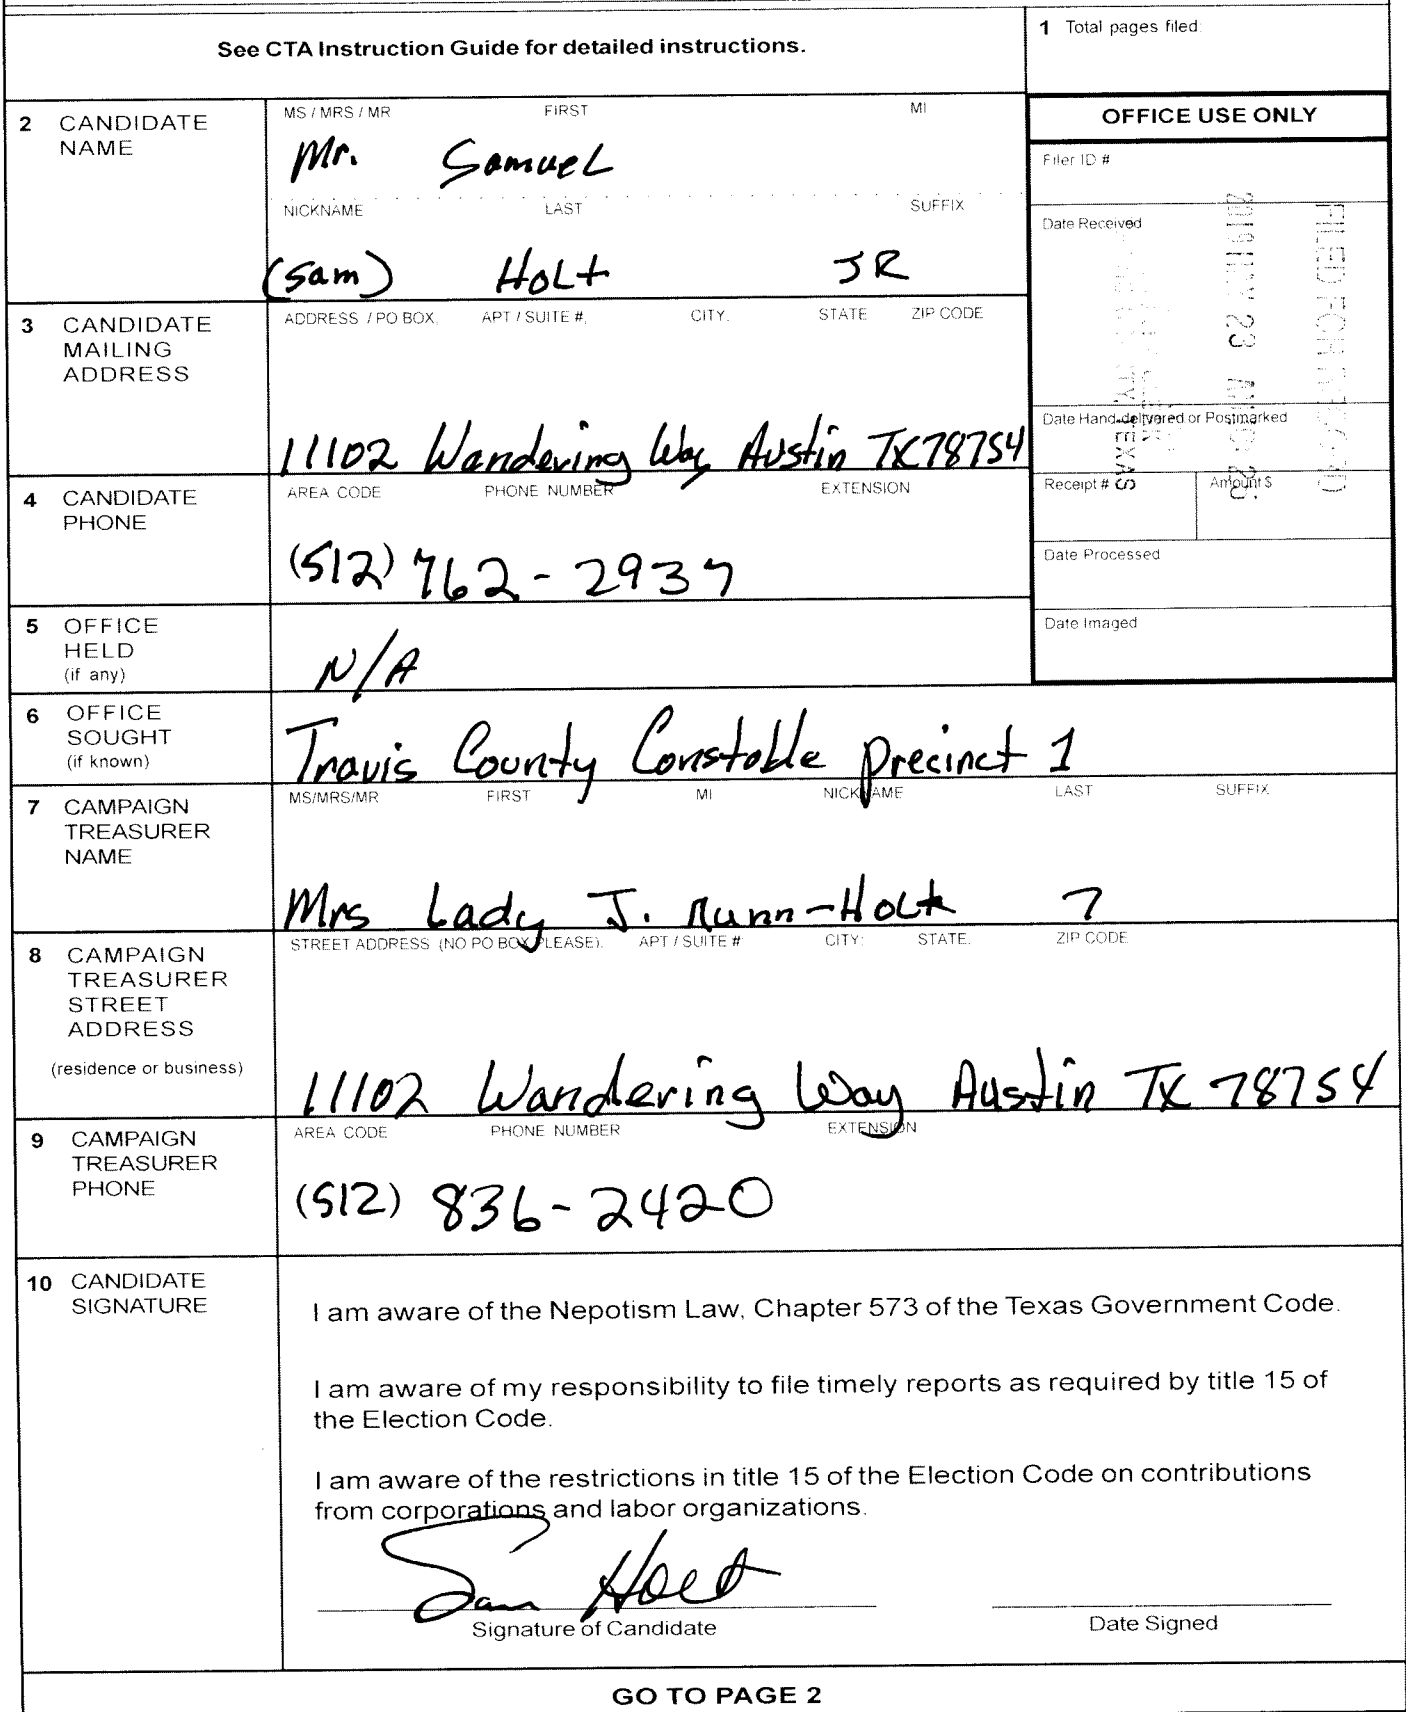 See CTA Instruction Guide for detailed instructions.
1 Total pages filed:
2 CANDIDATE NAME
MS / MRS / MR FIRST MI
Mr. Samuel
NICKNAME LAST SUFFIX
(Sam) Holt JR
OFFICE USE ONLY
Filer ID #
Date Received
Date Hand-delivered or Postmarked
Receipt # Amount $
Date Processed
Date Imaged
FILED FOR RECORD
23
TEXAS
3 CANDIDATE MAILING ADDRESS
ADDRESS / PO BOX; APT / SUITE #; CITY; STATE ZIP CODE
11102 Wandering Way Austin TX 78754
4 CANDIDATE PHONE
AREA CODE PHONE NUMBER EXTENSION
(512) 762-2937
5 OFFICE HELD (if any)
N/A
6 OFFICE SOUGHT (if known)
Travis County Constable precinct 1
7 CAMPAIGN TREASURER NAME
MS/MRS/MR FIRST MI NICKNAME LAST SUFFIX
Mrs Lady J. Nunn-Holt
8 CAMPAIGN TREASURER STREET ADDRESS
(residence or business)
STREET ADDRESS (NO PO BOX PLEASE); APT / SUITE # CITY; STATE; ZIP CODE
11102 Wandering Way Austin TX 78754
9 CAMPAIGN TREASURER PHONE
AREA CODE PHONE NUMBER EXTENSION
(512) 836-2420
10 CANDIDATE SIGNATURE
I am aware of the Nepotism Law, Chapter 573 of the Texas Government Code.
I am aware of my responsibility to file timely reports as required by title 15 of
the Election Code.
I am aware of the restrictions in title 15 of the Election Code on contributions
from corporations and labor organizations.
Sam Holt
Signature of Candidate Date Signed
GO TO PAGE 2